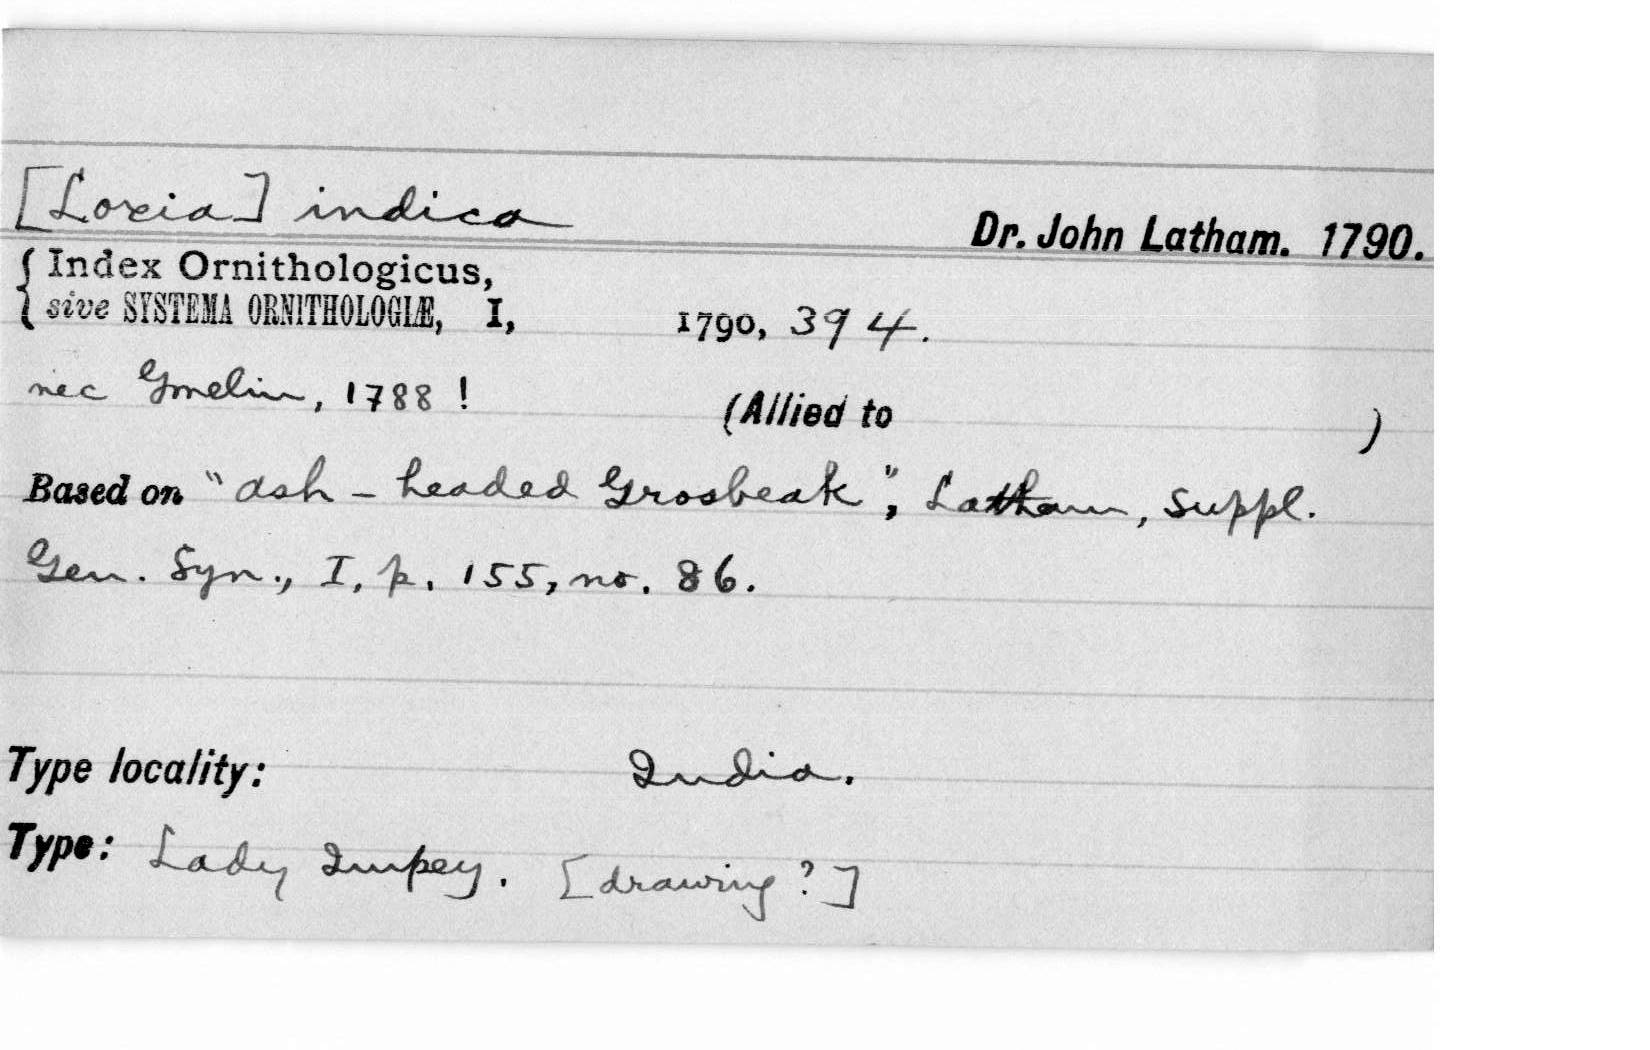 [Loxia] indica
Dr. John Latham. 1790.
{ Index Ornithologicus,
sive SYSTEMA ORNITHOLOGIÆ, I, 1790, 394.
nec Gmelin, 1788 !
(Allied to )
Based on "Ash-headed Grosbeak", Latham, Suppl.
Gen. Syn., I, p. 155, no. 86.
Type locality: India.
Type: Lady Impey. [drawing?]